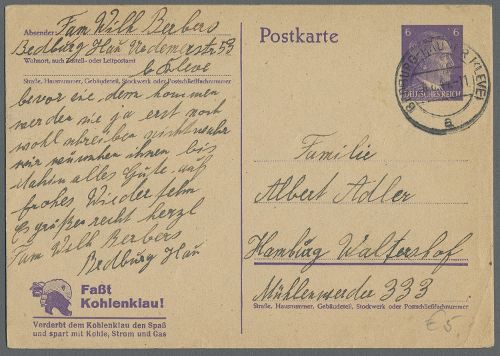 Absender: Fam Wilh Berbers
Bedburg Hau Uedemerstr 53
Wohnort, auch Zustell- oder Leitpostamt
b Kleve
Straße, Hausnummer, Gebäudeteil, Stockwerk oder Postschließfachnummer
bevor sie dem kommen
werden sie ja erst noch
wohl schreiben nicht wahr
wir wünschen ihnen bis
dahin alles Gute auf
frohes Wiedersehn
Es grüßen recht herzl
Fam Wilh Berbers
Bedburg Hau
Faßt
Kohlenklau!
Verderbt dem Kohlenklau den Spaß
und spart mit Kohle, Strom und Gas
Postkarte
6 6
DEUTSCHES REICH
BEDBURG-HAU (KLEVE)
a
Familie
Albert Adler
Hamburg Waltershof
Mühlenwerder 333
Straße, Hausnummer, Gebäudeteil, Stockwerk oder Postschließfachnummer
€5